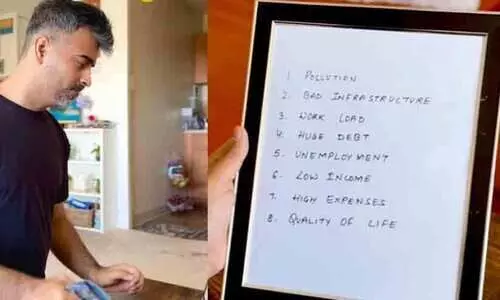 1 POLLUTION
2. BAD INFRASTRUCTURE
3 WORK LOAD
4. HUGE DEBT
5. UNEMPLOYMENT
6 LOW INCOME
7 HIGH EXPENSES
8. QUALITY OF LIFE